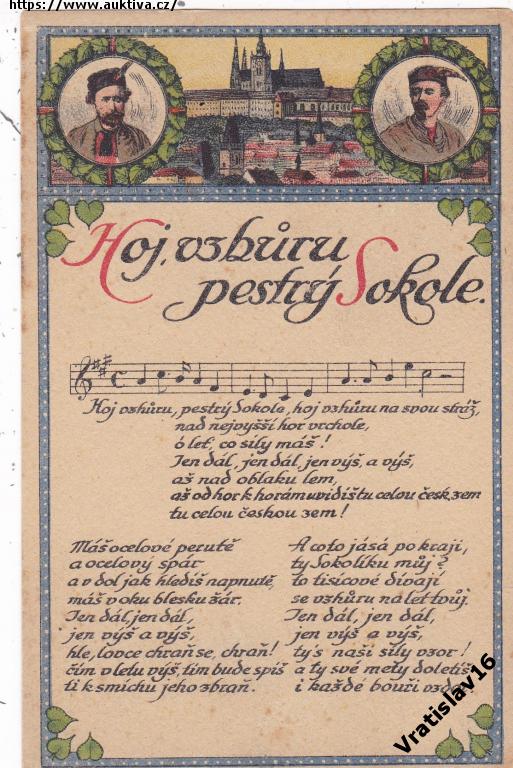 https://www.auktiva.cz/
Hoj, vzhůru
pestrý Sokole.
Hoj vzhůru, pestrý Sokole, hoj vzhůru na svou stráž,
nad nejvyšší hor vrchole,
ó leť, co síly máš!
Jen dál, jen dál, jen výš, a výš,
až nad oblaku lem,
až od hor k horám uvidíš tu celou česk. zem
tu celou českou zem!
Máš ocelové perutě
a ocelový spár
a v dol jak hledíš napnutě,
máš v oku blesku žár.
Jen dál, jen dál,
jen výš a výš,
hle, lovce chraň se, chraň!
čím v letu výš, tím bude spíš
ti k smíchu jeho zbraň.
A co to jásá po kraji,
ty Sokolíku můj?
to tisícové dívají
se vzhůru na let tvůj.
Jen dál, jen dál,
jen výš a výš,
ty's naší síly vzor!
a ty své mety doletíš
i každé bouři
Vratislav16